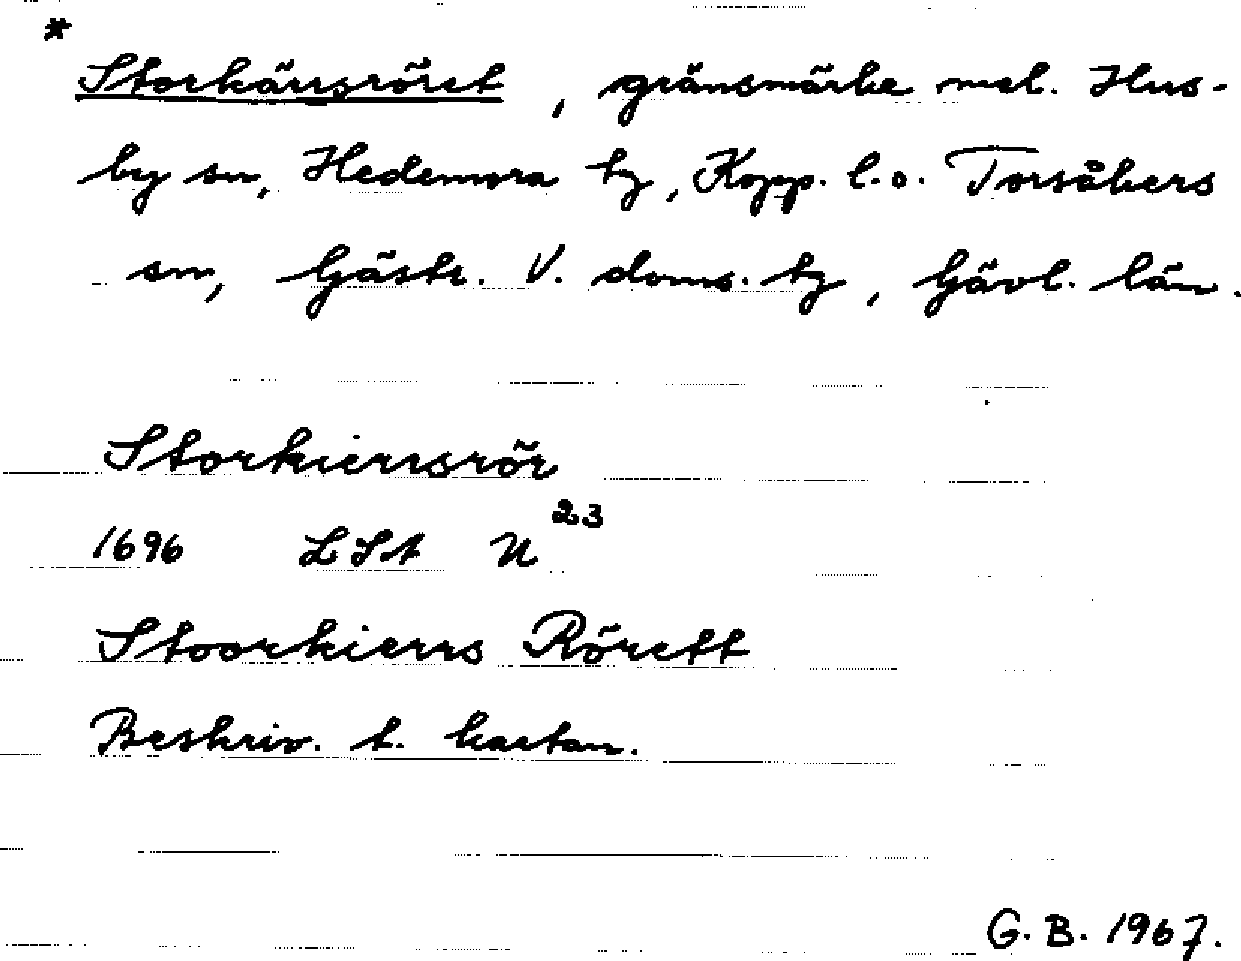 *
Storkärrsröret, gränsmärke mel. Hus-
by sn, Hedemora tg, Kopp. l. o. Torsåkers
sn, Gästr. V. doms. tg, Gävl. län.
Storkierrsrör
1696 LSA U 23
Stoorkierrs Rörett
Beskriv. t. kartan.
G. B. 1967.